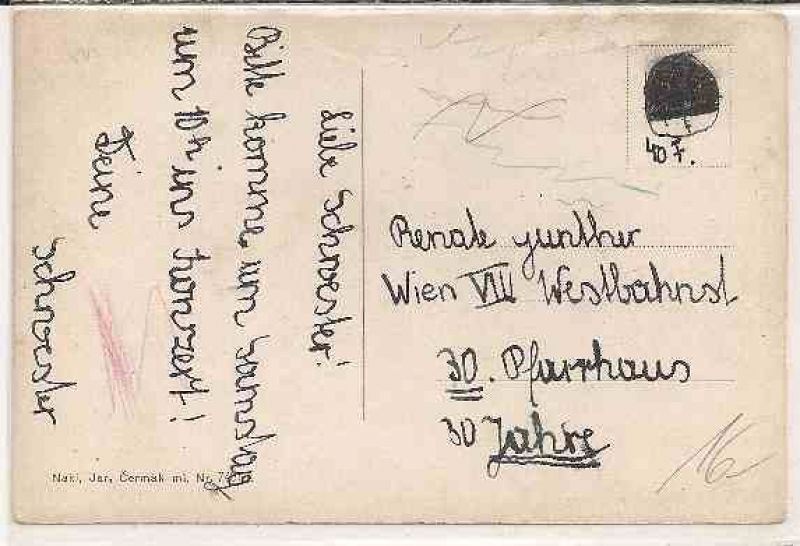 Liebe Schwester!
Bitte komme um Samstag
um 10h ins Konzert!
Deine
Schwester
40 F.
Renate Günther
Wien VIII Westbahnst
30. Pfarrhaus
30 Jahre
16
Nakl. Jar. Čermák ml. Nr.